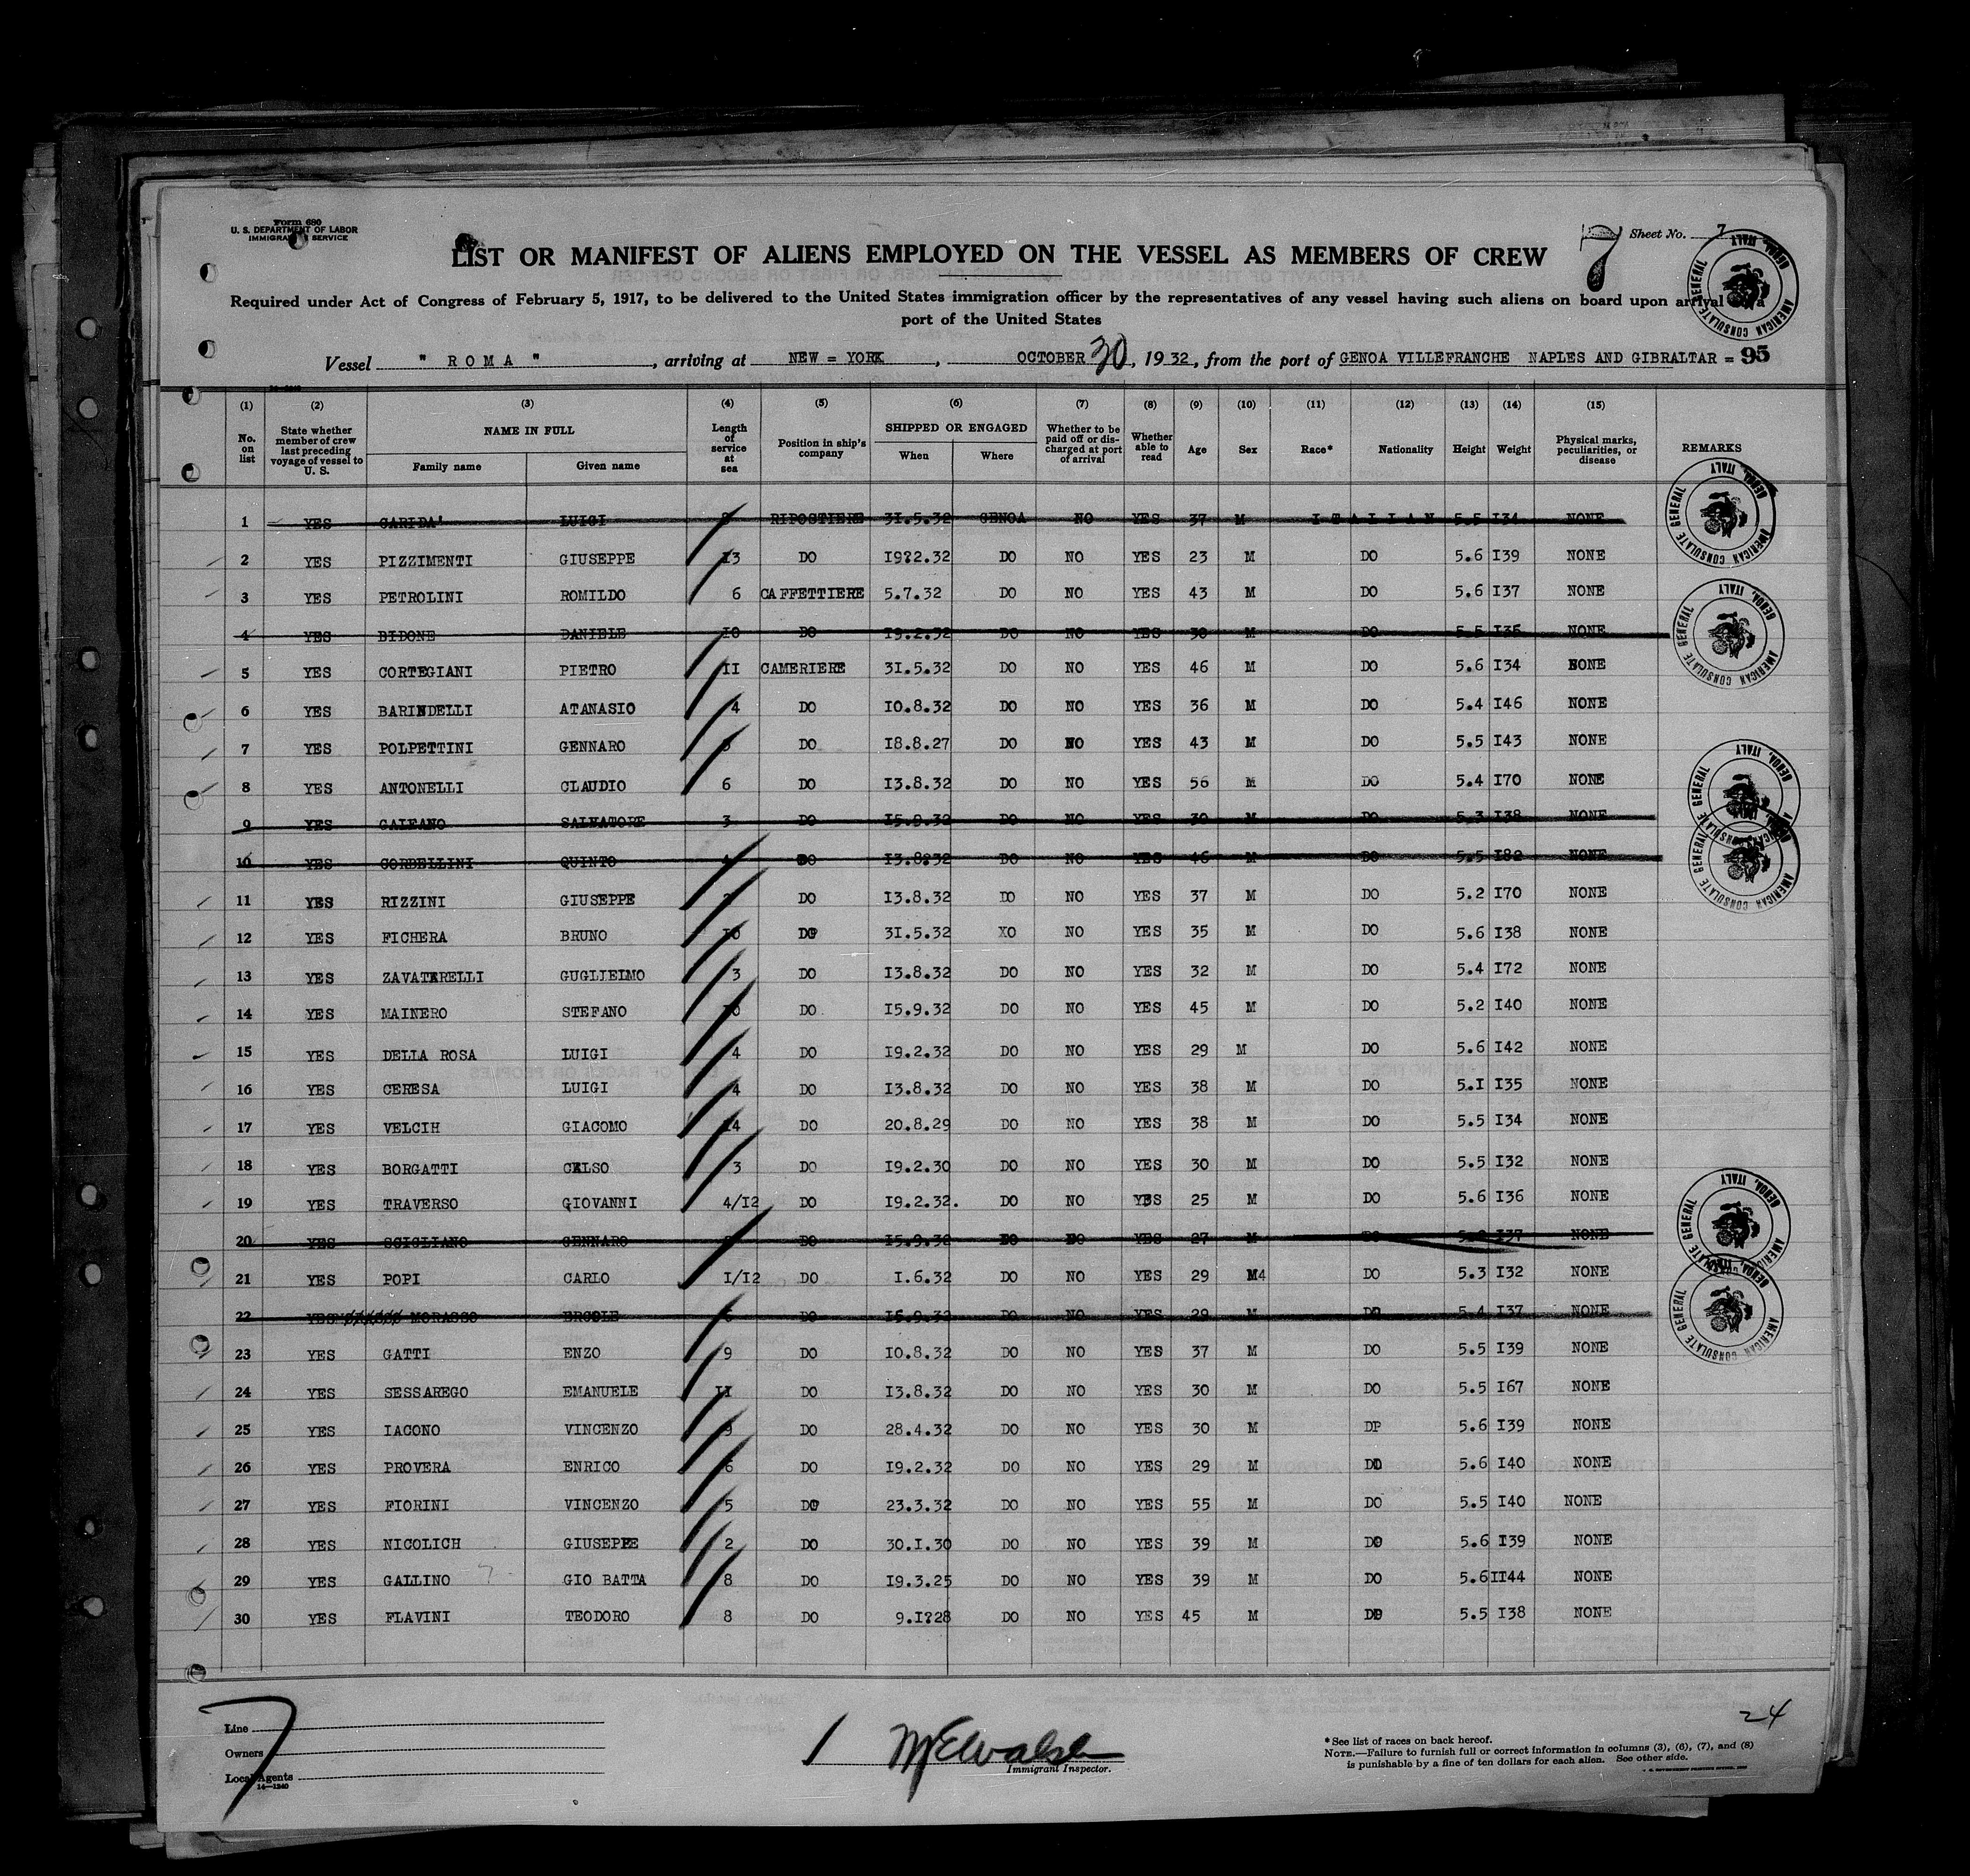 Form 680
U. S. DEPARTMENT OF LABOR
IMMIGRATION SERVICE
Sheet No. 7
7
LIST OR MANIFEST OF ALIENS EMPLOYED ON THE VESSEL AS MEMBERS OF CREW
Required under Act of Congress of February 5, 1917, to be delivered to the United States immigration officer by the representatives of any vessel having such aliens on board upon arrival at a
port of the United States
Vessel " R O M A " , arriving at NEW = YORK , OCTOBER 30 , 19 32, from the port of GENOA VILLEFRANCHE NAPLES AND GIBRALTAR = 95
(1) (2) (3) (4) (5) (6) (7) (8) (9) (10) (11) (12) (13) (14) (15)
No. on list State whether member of crew last preceding voyage of vessel to U. S. NAME IN FULL Family name Given name Length of service at sea Position in ship's company SHIPPED OR ENGAGED When Where Whether to be paid off or discharged at port of arrival Whether able to read Age Sex Race* Nationality Height Weight Physical marks, peculiarities, or disease REMARKS
1 YES CARIDA' LUIGI RIPOSTIERE 31.5.32 GENOA NO YES 37 M I T A L I A N 5.5 I34 NONE
2 YES PIZZIMENTI GIUSEPPE I3 DO I9?2.32 DO NO YES 23 M DO 5.6 I39 NONE
3 YES PETROLINI ROMILDO 6 CAFFETTIERE 5.7.32 DO NO YES 43 M DO 5.6 I37 NONE
4 YES BIDONE DANIELE I0 DO I9.2.32 DO NO YES 30 M DO 5.5 I35 NONE
5 YES CORTEGIANI PIETRO II CAMERIERE 3I.5.32 DO NO YES 46 M DO 5.6 I34 NONE
6 YES BARINDELLI ATANASIO 4 DO I0.8.32 DO NO YES 36 M DO 5.4 I46 NONE
7 YES POLPETTINI GENNARO DO I8.8.27 DO NO YES 43 M DO 5.5 I43 NONE
8 YES ANTONELLI CLAUDIO 6 DO I3.8.32 DO NO YES 56 M DO 5.4 I70 NONE
9 YES GALEANO SALVATORE 3 DO I5.9.32 DO NO YES 30 M DO 5.3 I38 NONE
10 YES CORDELLINI QUINTO DO I3.8?32 DO NO YES 46 M DO 5.5 I82 NONE
11 YES RIZZINI GIUSEPPE DO I3.8.32 DO NO YES 37 M DO 5.2 I70 NONE
12 YES FICHERA BRUNO DO 3I.5.32 XO NO YES 35 M DO 5.6 I38 NONE
13 YES ZAVATARELLI GUGLIELMO 3 DO I3.8.32 DO NO YES 32 M DO 5.4 I72 NONE
14 YES MAINERO STEFANO DO I5.9.32 DO NO YES 45 M DO 5.2 I40 NONE
15 YES DELLA ROSA LUIGI 4 DO I9.2.32 DO NO YES 29 M DO 5.6 I42 NONE
16 YES CERESA LUIGI 4 DO I3.8.32 DO NO YES 38 M DO 5.I I35 NONE
17 YES VELCIH GIACOMO I4 DO 20.8.29 DO NO YES 38 M DO 5.5 I34 NONE
18 YES BORGATTI CELSO 3 DO I9.2.30 DO NO YES 30 M DO 5.5 I32 NONE
19 YES TRAVERSO GIOVANNI 4/I2 DO I9.2.32. DO NO YES 25 M DO 5.6 I36 NONE
20 YES SCIGLIANO GENNARO DO I5.9.32 DO NO YES 27 M DO I37 NONE
21 YES POPI CARLO I/I2 DO I.6.32 DO NO YES 29 M4 DO 5.3 I32 NONE
22 YES MORASSO ERCOLE 6 DO I5.9.32 DO NO YES 29 M DO 5.4 I37 NONE
23 YES GATTI ENZO 9 DO I0.8.32 DO NO YES 37 M DO 5.5 I39 NONE
24 YES SESSAREGO EMANUELE II DO I3.8.32 DO NO YES 30 M DO 5.5 I67 NONE
25 YES IACONO VINCENZO 9 DO 28.4.32 DO NO YES 30 M DP 5.6 I39 NONE
26 YES PROVERA ENRICO 6 DO I9.2.32 DO NO YES 29 M DO 5.6 I40 NONE
27 YES FIORINI VINCENZO 5 DO 23.3.32 DO NO YES 55 M DO 5.5 I40 NONE
28 YES NICOLICH GIUSEPPE 2 DO 30.I.30 DO NO YES 39 M DO 5.6 I39 NONE
29 YES GALLINO GIO BATTA 8 DO I9.3.25 DO NO YES 39 M DO 5.6 II44 NONE
30 YES FLAVINI TEODORO 8 DO 9.I?28 DO NO YES 45 M DO 5.5 I38 NONE
AMERICAN CONSULATE GENERAL GENOA, ITALY
24
7
Line
Owners
Local Agents
14—1240
Immigrant Inspector.
* See list of races on back hereof.
NOTE.—Failure to furnish full or correct information in columns (3), (6), (7), and (8)
is punishable by a fine of ten dollars for each alien. See other side.